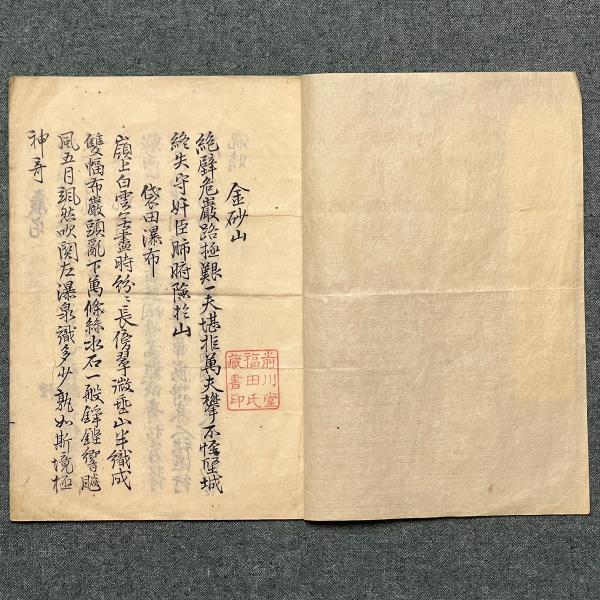 金砂山
絶壁危巌路極艱一夫堪拒萬夫攀不怪堅城
終失守奸臣肺腑險於山
袋田瀑布
嶺上白雲無盡時紛〻長傍翠微垂山半織成
雙幅布巌頭亂下萬條絲水石一般錚鏗響
風五月颯然吹関左瀑泉識多少孰如斯境極
神奇
前川堂
福田氏
藏書印